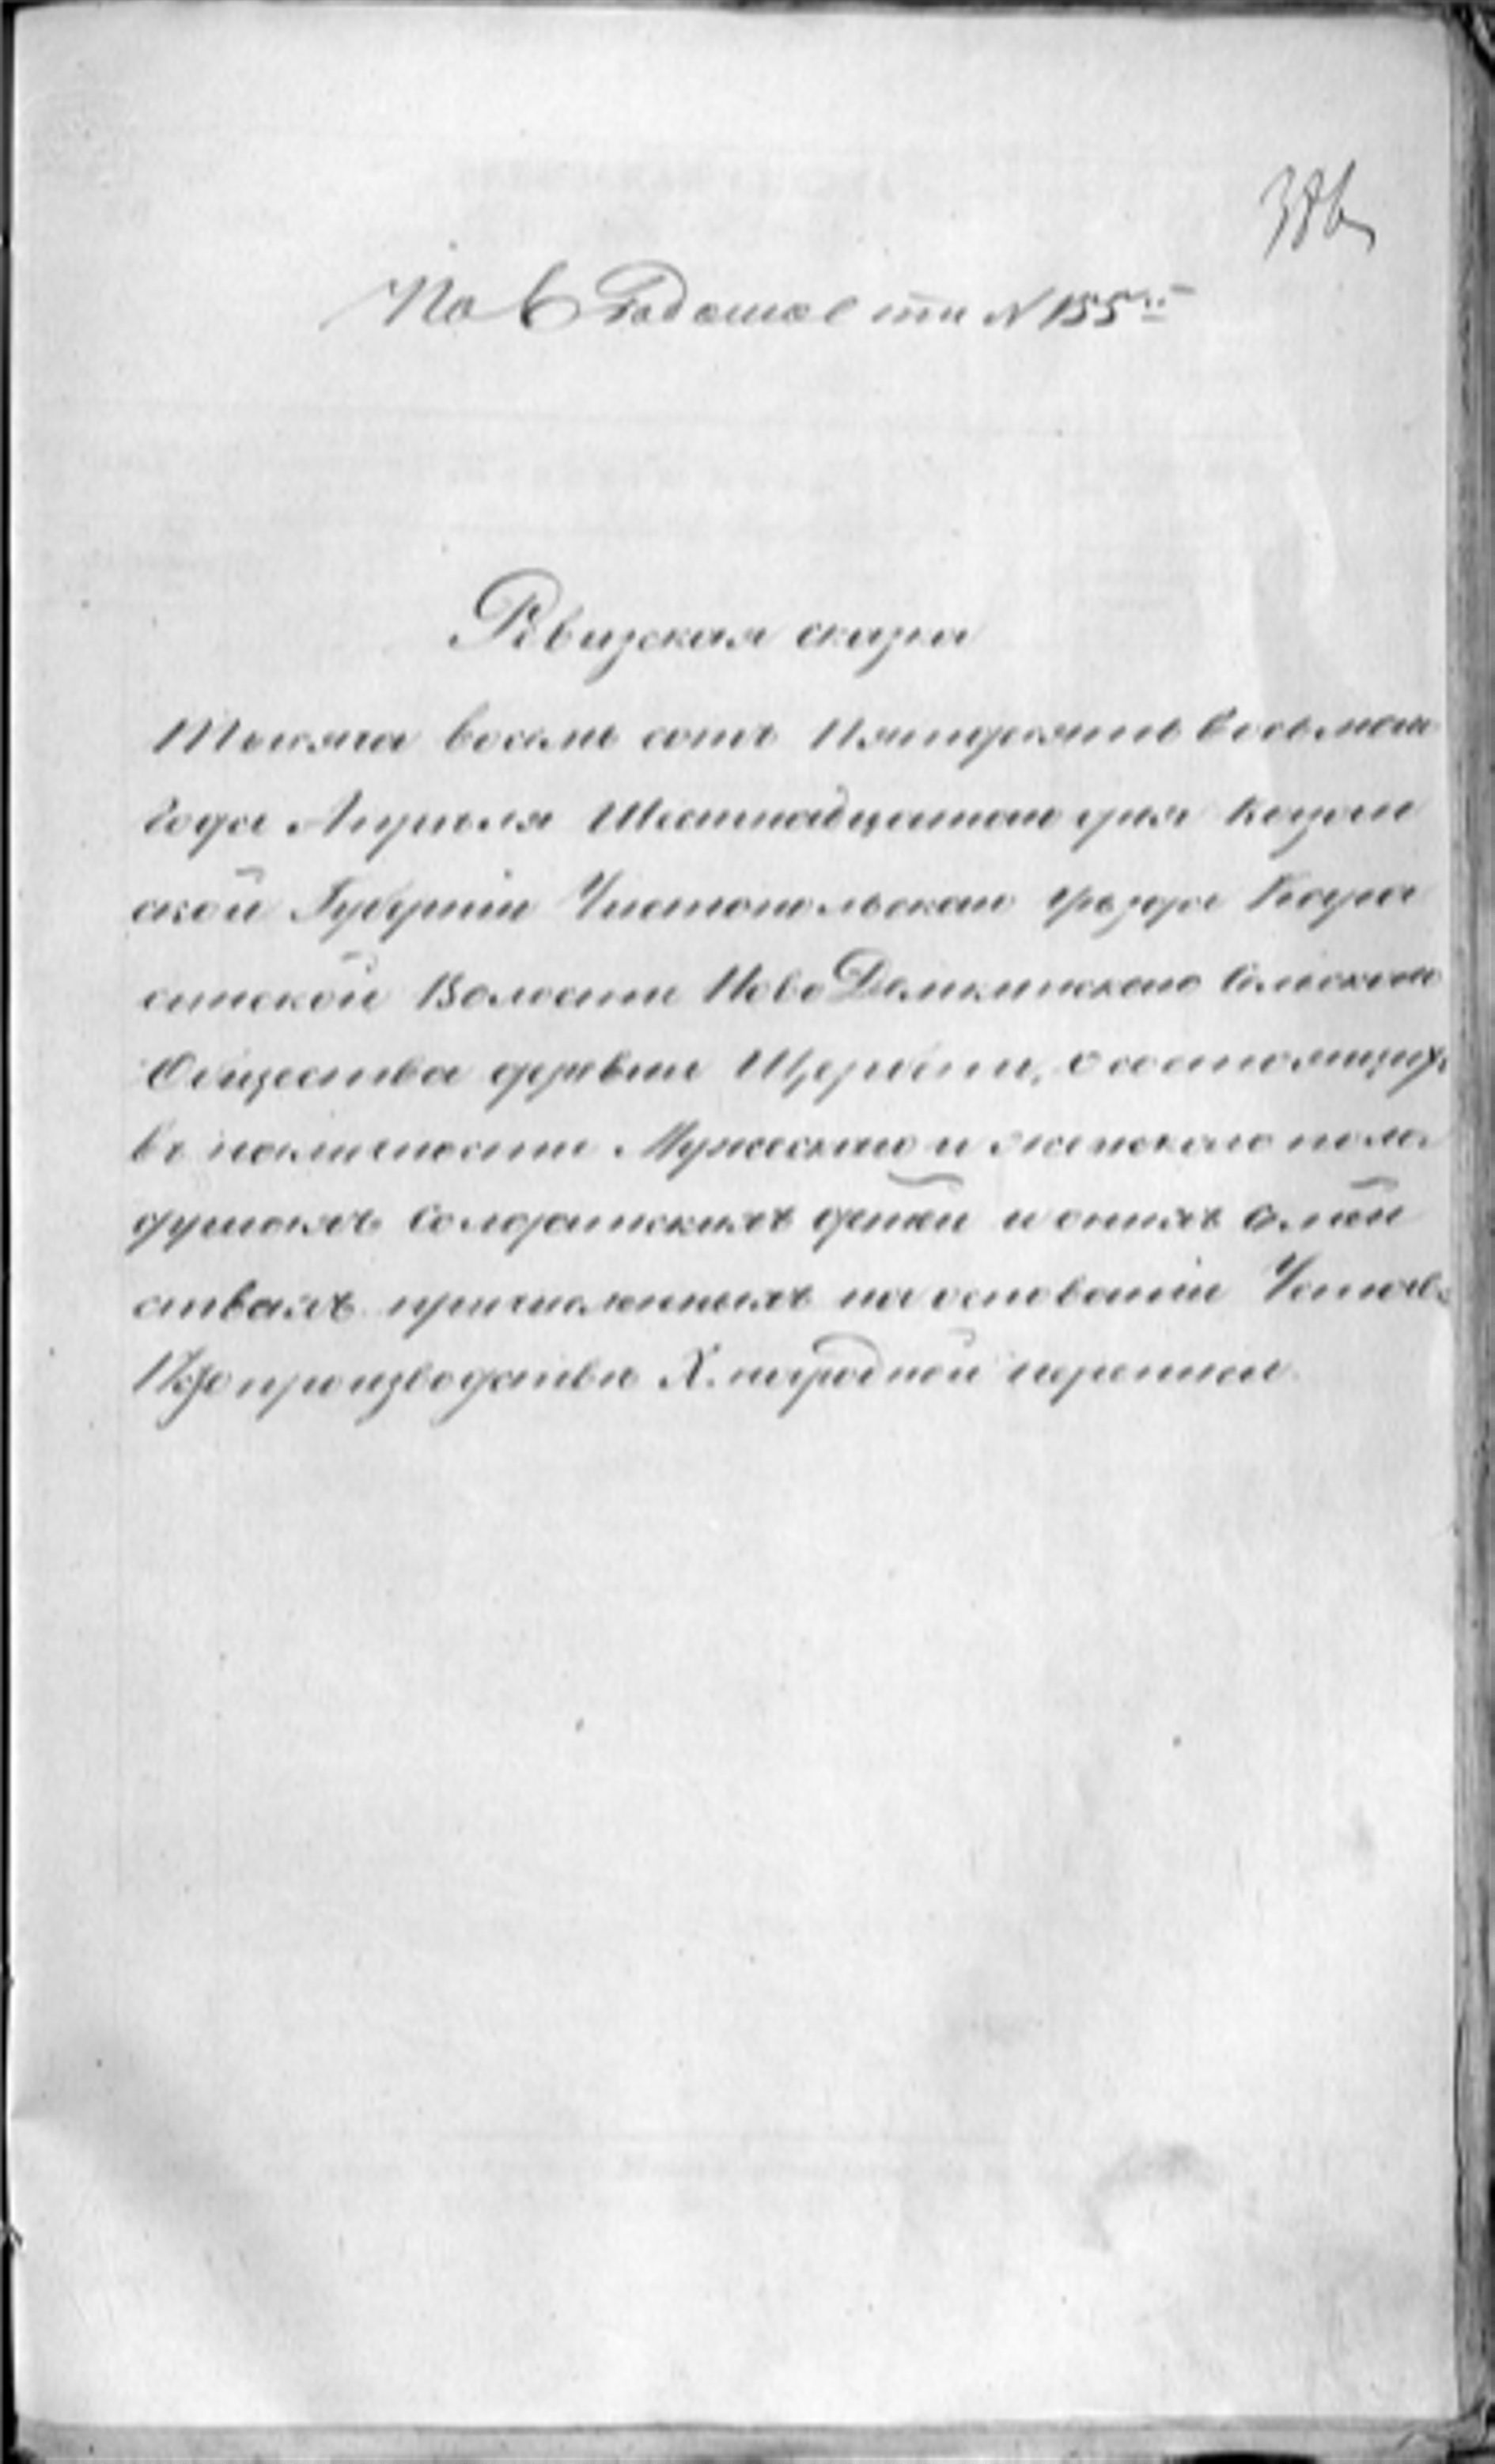 386
По Ведомости № 155й
Ревизская сказка
Тысяча восемь сотъ Пятьдесятъ восьмаго
Года Апреля Шестнадцатаго дня Казан
ской Губерніи Чистопольскаго Уѣзда
синской Волости Ново Демкинскаго Сельскаго
Общества деревни о состоящихъ
въ наличности Мужескаго и женскаго пола
душахъ Солдатскихъ детей и оныхъ семей
ствахъ причисленныхъ на основаніи Устава
производства X. народной переписи.